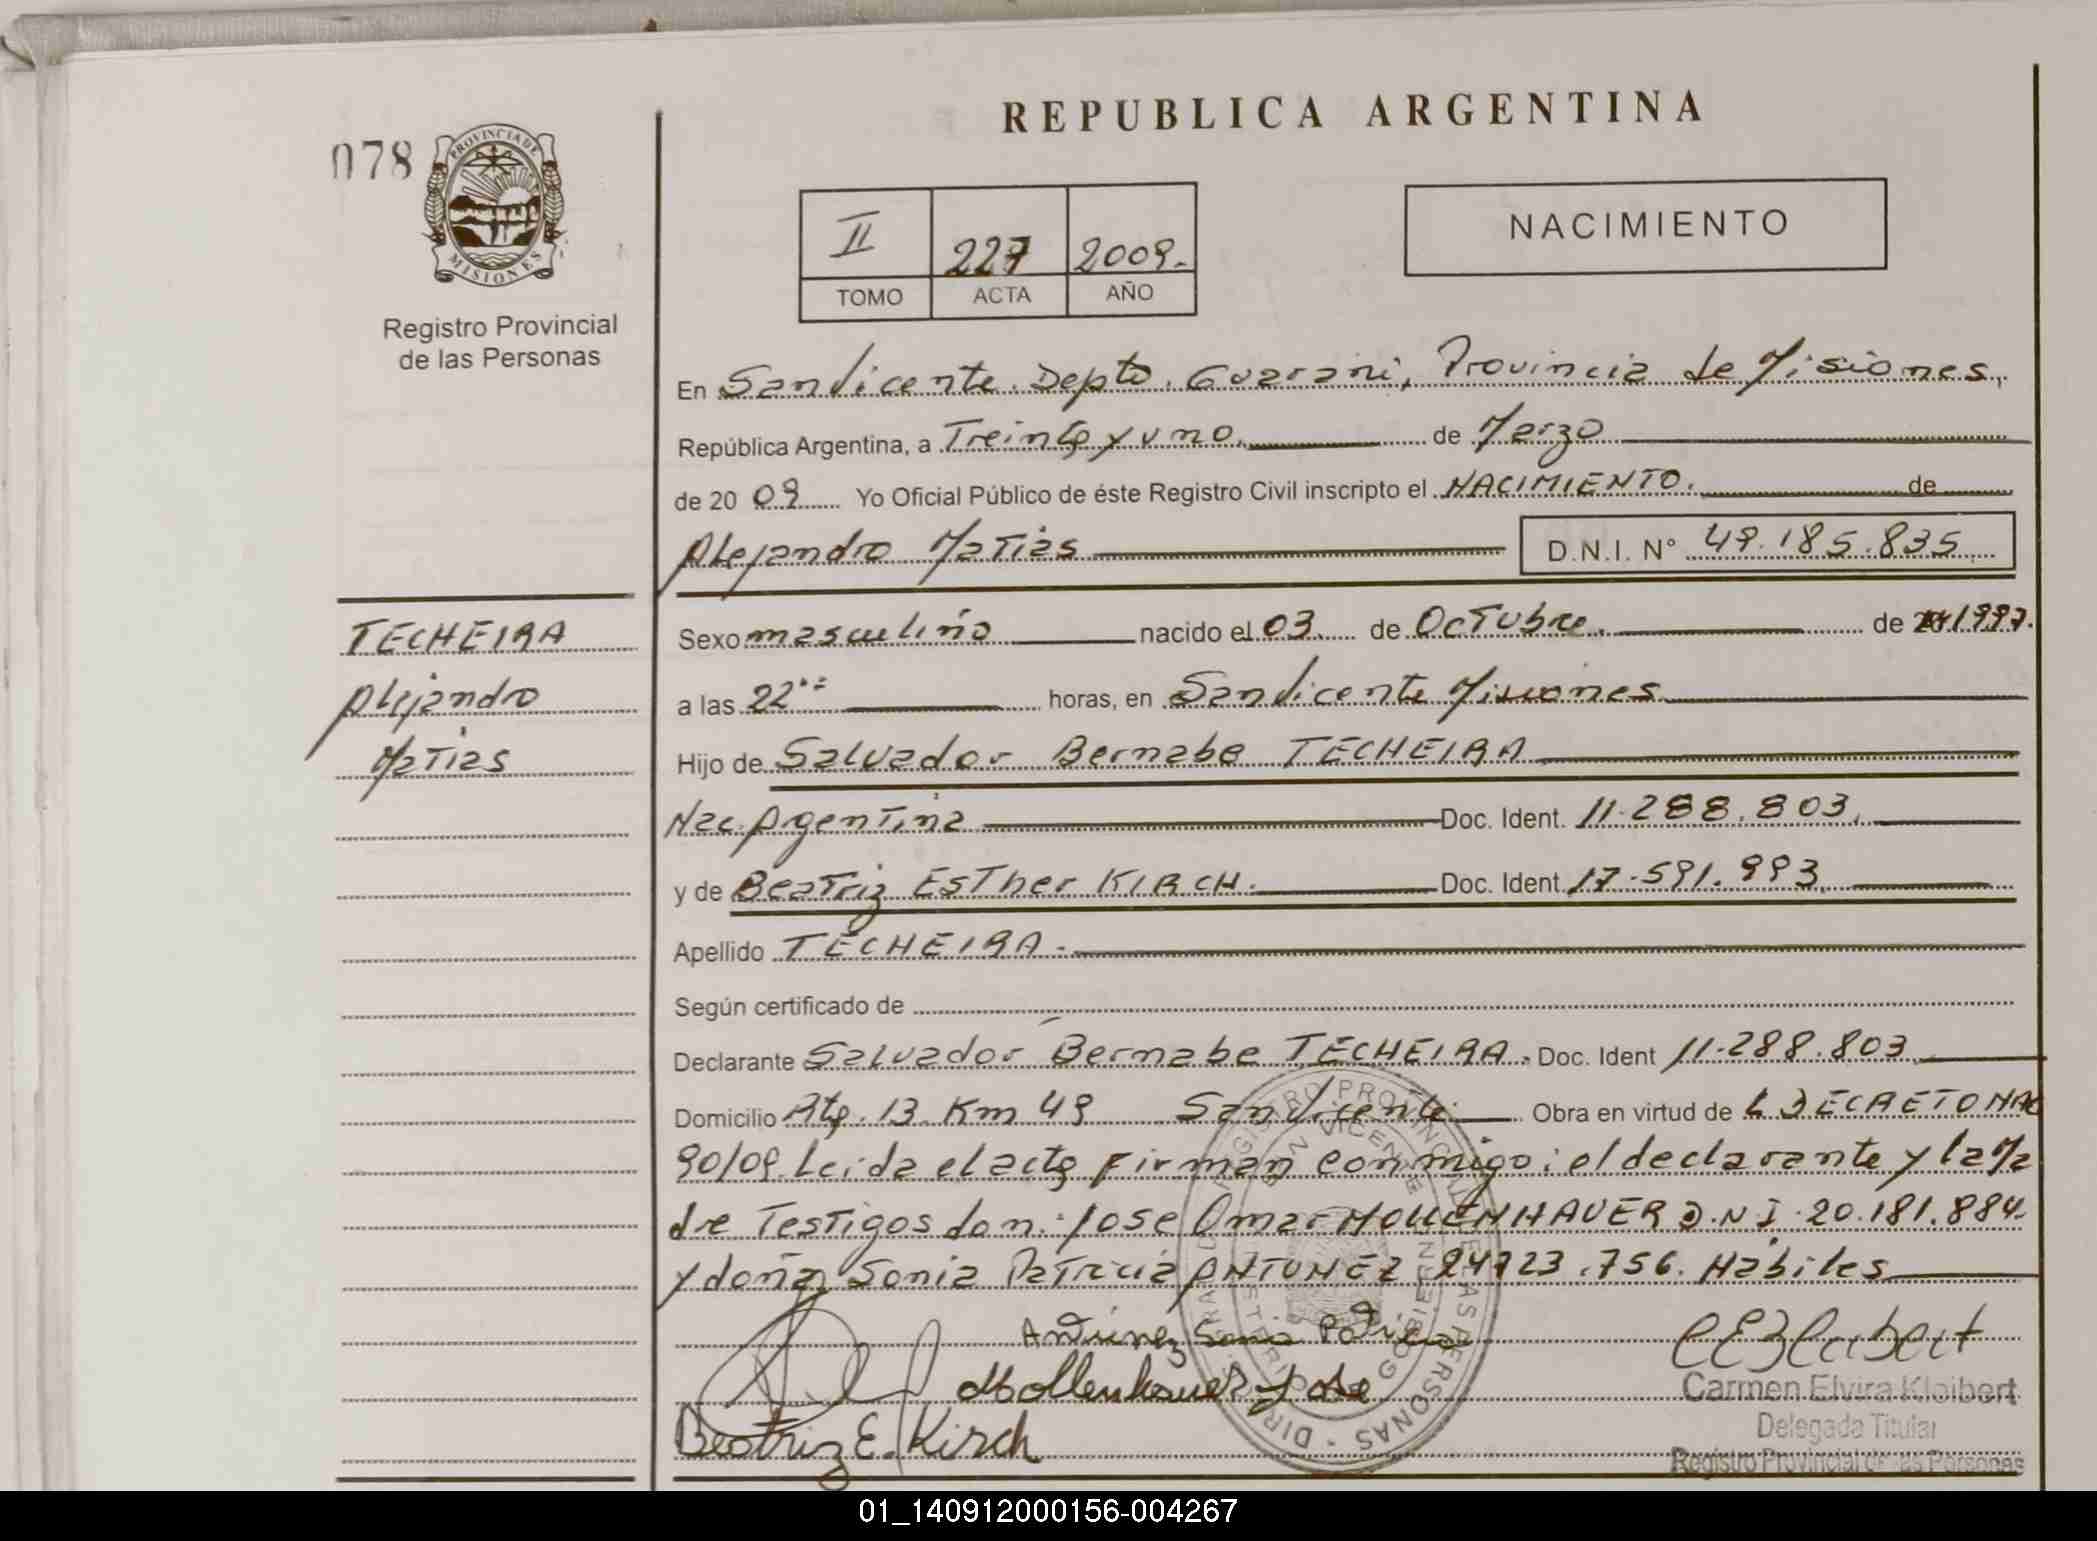 REPUBLICA ARGENTINA
078
PROVINCIA DE
MISIONES
Registro Provincial
de las Personas
II 227 2009.-
TOMO ACTA AÑO
NACIMIENTO
En San Vicente. Depto. Guarani, Provincia de Misiones,
República Argentina, a Treinta y uno. de Marzo
de 20 09 Yo Oficial Público de éste Registro Civil inscripto el NACIMIENTO. de
Alejandro Matias D.N.I. N° 49.185.835
TECHEIRA
Alejandro
Matias
Sexo masculino nacido el 03 de Octubre. de 1997.
a las 22 horas, en San Vicente Misiones
Hijo de Salvador Bernabe TECHEIRA
Nac. Argentina Doc. Ident. 11.288.803.
y de Beatriz Esther KIRCH. Doc. Ident. 17.591.993
Apellido TECHEIRA.-
Según certificado de
Declarante Salvador Bernabe TECHEIRA. Doc. Ident 11.288.803
Domicilio Rta. 13. Km 49 San Vicente Obra en virtud de L DECRETO NAC
90/09. Leida el acta Firman conmigo: el declarante y la Ma
dre Testigos don: Jose Omar MOLLENHAUER D.N.I. 20.181.884.
y doña Sonia Patricia ANTUNEZ 24723.756. Habiles
Antunez Sonia Patricia
Mollenhauer Jose
Beatriz E. Kirch
Carmen Elvira Kloibert
Delegada Titular
Registro Provincial de las Personas
01_140912000156-004267